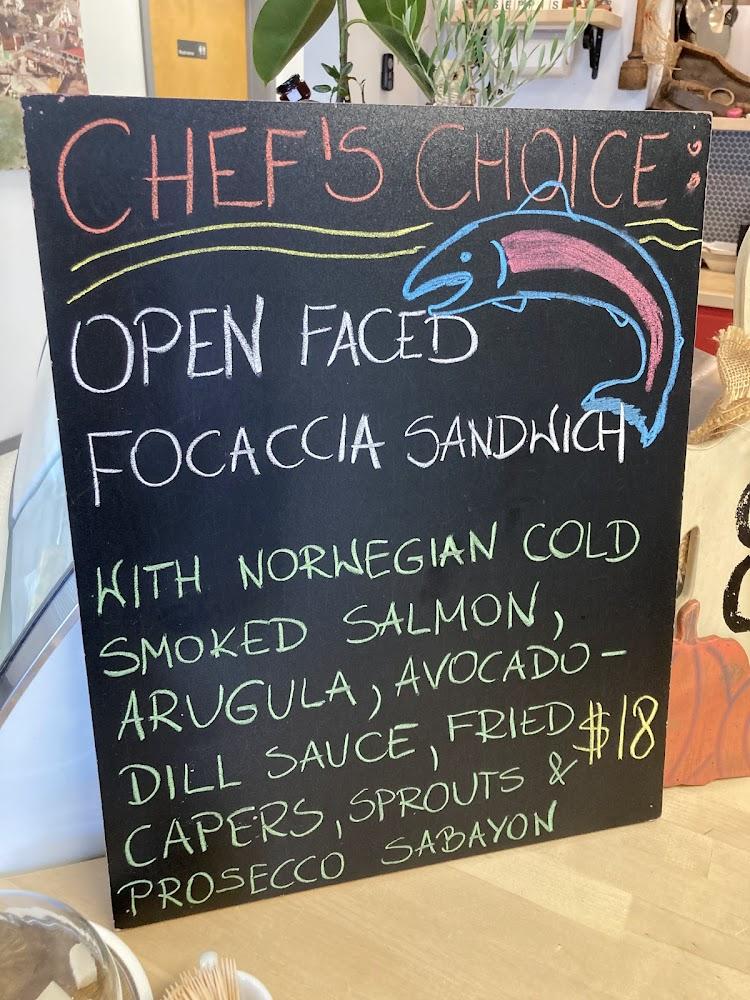 CHEF'S CHOICE:
OPEN FACED
FOCACCIA SANDWICH
WITH NORWEGIAN COLD
SMOKED SALMON,
ARUGULA, AVOCADO-
DILL SAUCE, FRIED
CAPERS, SPROUTS &
PROSECCO SABAYON
$18